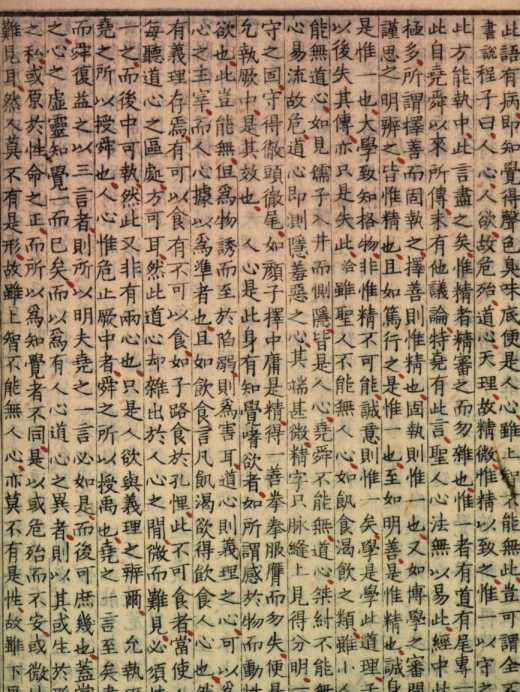 此語有病即如覺得聲色臭味底便是人心雖上智不能無此豈可謂全不
書說程子曰人心人欲故危殆道心天理故精微惟精以致之惟一
此方能執中此言盡之矣惟精者精審之而勿雜也惟一者有道有尾專
此自堯舜以來所傳未有他議論時先有此言聖人心法無以易此經中
極多所謂擇善而固執之擇善則惟精也固執則惟一也又如博學之審問
謹思之明辨之皆惟精也且如篤行之是惟一也至如明善是惟精也誠身
是惟一也大學致知格物非惟精不可能誠意則惟一矣學是學此道理
以後失其傳亦只是失此 雖聖人不能無人心如飢食渴飲之類雖小
能無道心如見孺子入井而惻隱皆是人心堯舜不能無道心桀紂不能無
心易流故危道心即惻隱羞惡之心其端甚微精字只脉縫上見得分明一
守之固守得徹頭徹尾如顏子擇中庸是精得一善拳拳服膺而勿失便是
允執厥中是其效也 人心是此身有知覺嗜欲者如所謂感於物而動性
欲也此豈能無但為物誘而至於陷溺則為害耳道心則義理之心可以為
心之主宰而人心據以為準者也且如飲食言凡飢渴欲得飲食人心也
有義理存焉有可以食有不可以食如子路食於孔悝此不可食者當使人
每聽道心之區處方可耳然此道心却雜出於人心之間微而難見必須
一之而後中可執然此又非有兩心也只是人欲與義理之辨爾 允執
堯之所以授舜也人心惟危止厥中者舜之所以授禹也堯之一言至矣盡
而舜復益之以三言者則所以明夫堯之一言必如是而後可庶幾也蓋嘗
之心之虛靈知覺一而已矣而以為有人心道心之異者則以其或生於形
之私或原於性命之正而所以為知覺者不同是以或危殆而不安或微
難見耳然人莫不有是形故雖上智不能無人心亦莫不有是性故雖下愚